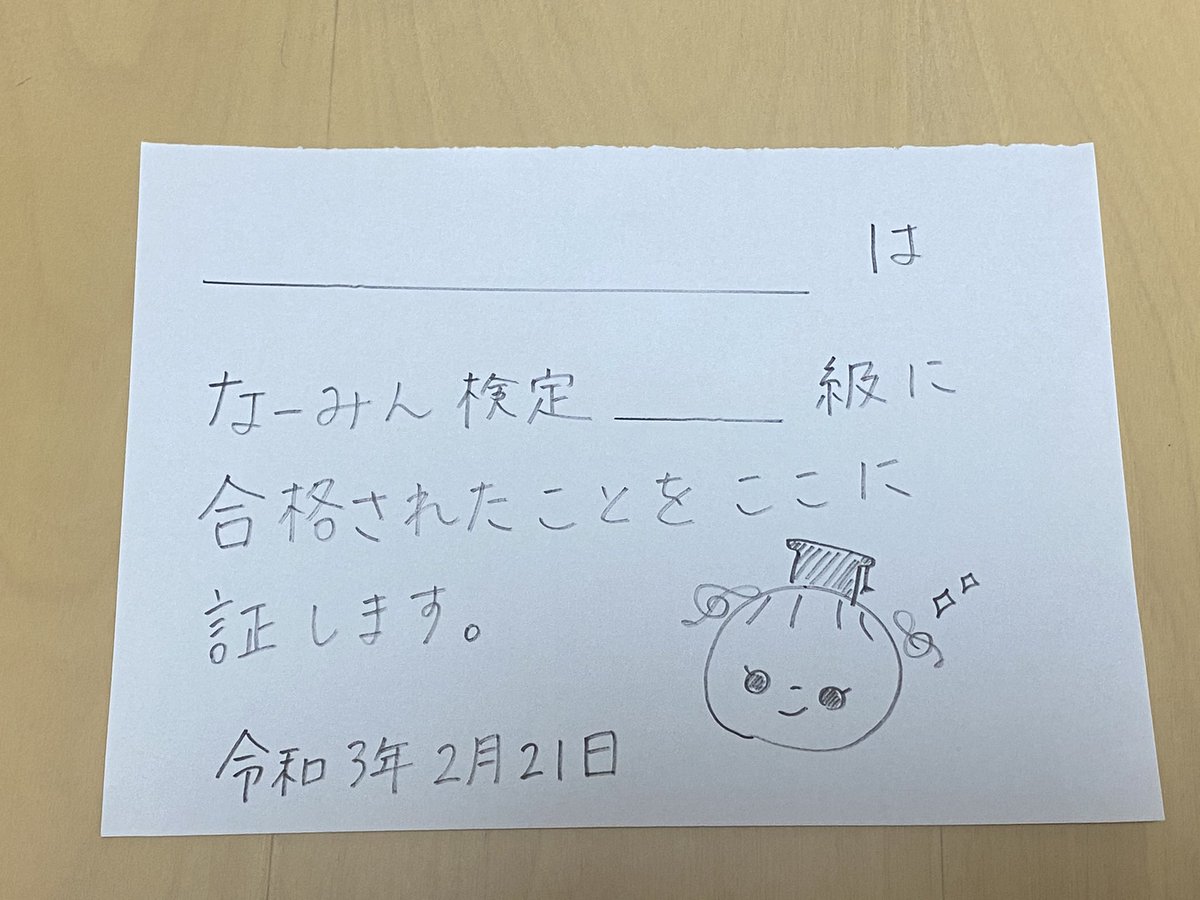 ＿＿＿＿＿＿＿＿ は
なーみん検定 ＿＿＿ 級に
合格されたことをここに
証します。
令和3年2月21日